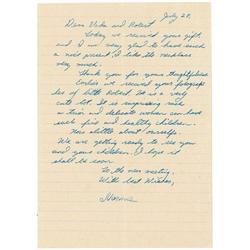 July 28,
Dear Vicka and Robert
Today we received your gift
and I am very glad to have such
a nice present. I like the necklace
very much.
Thank you for your thoughtfulness.
Earlier we received your fotograp-
hies of little Robert. It is a very
cute lot. It is surprising such
a thin and delicate woman can have
such fine and healthy children.
Now alittle about ourselfs.
We are getting ready to see you
and your children. I hope it
shall be soon.
To the new meeting.
With best Wishes,